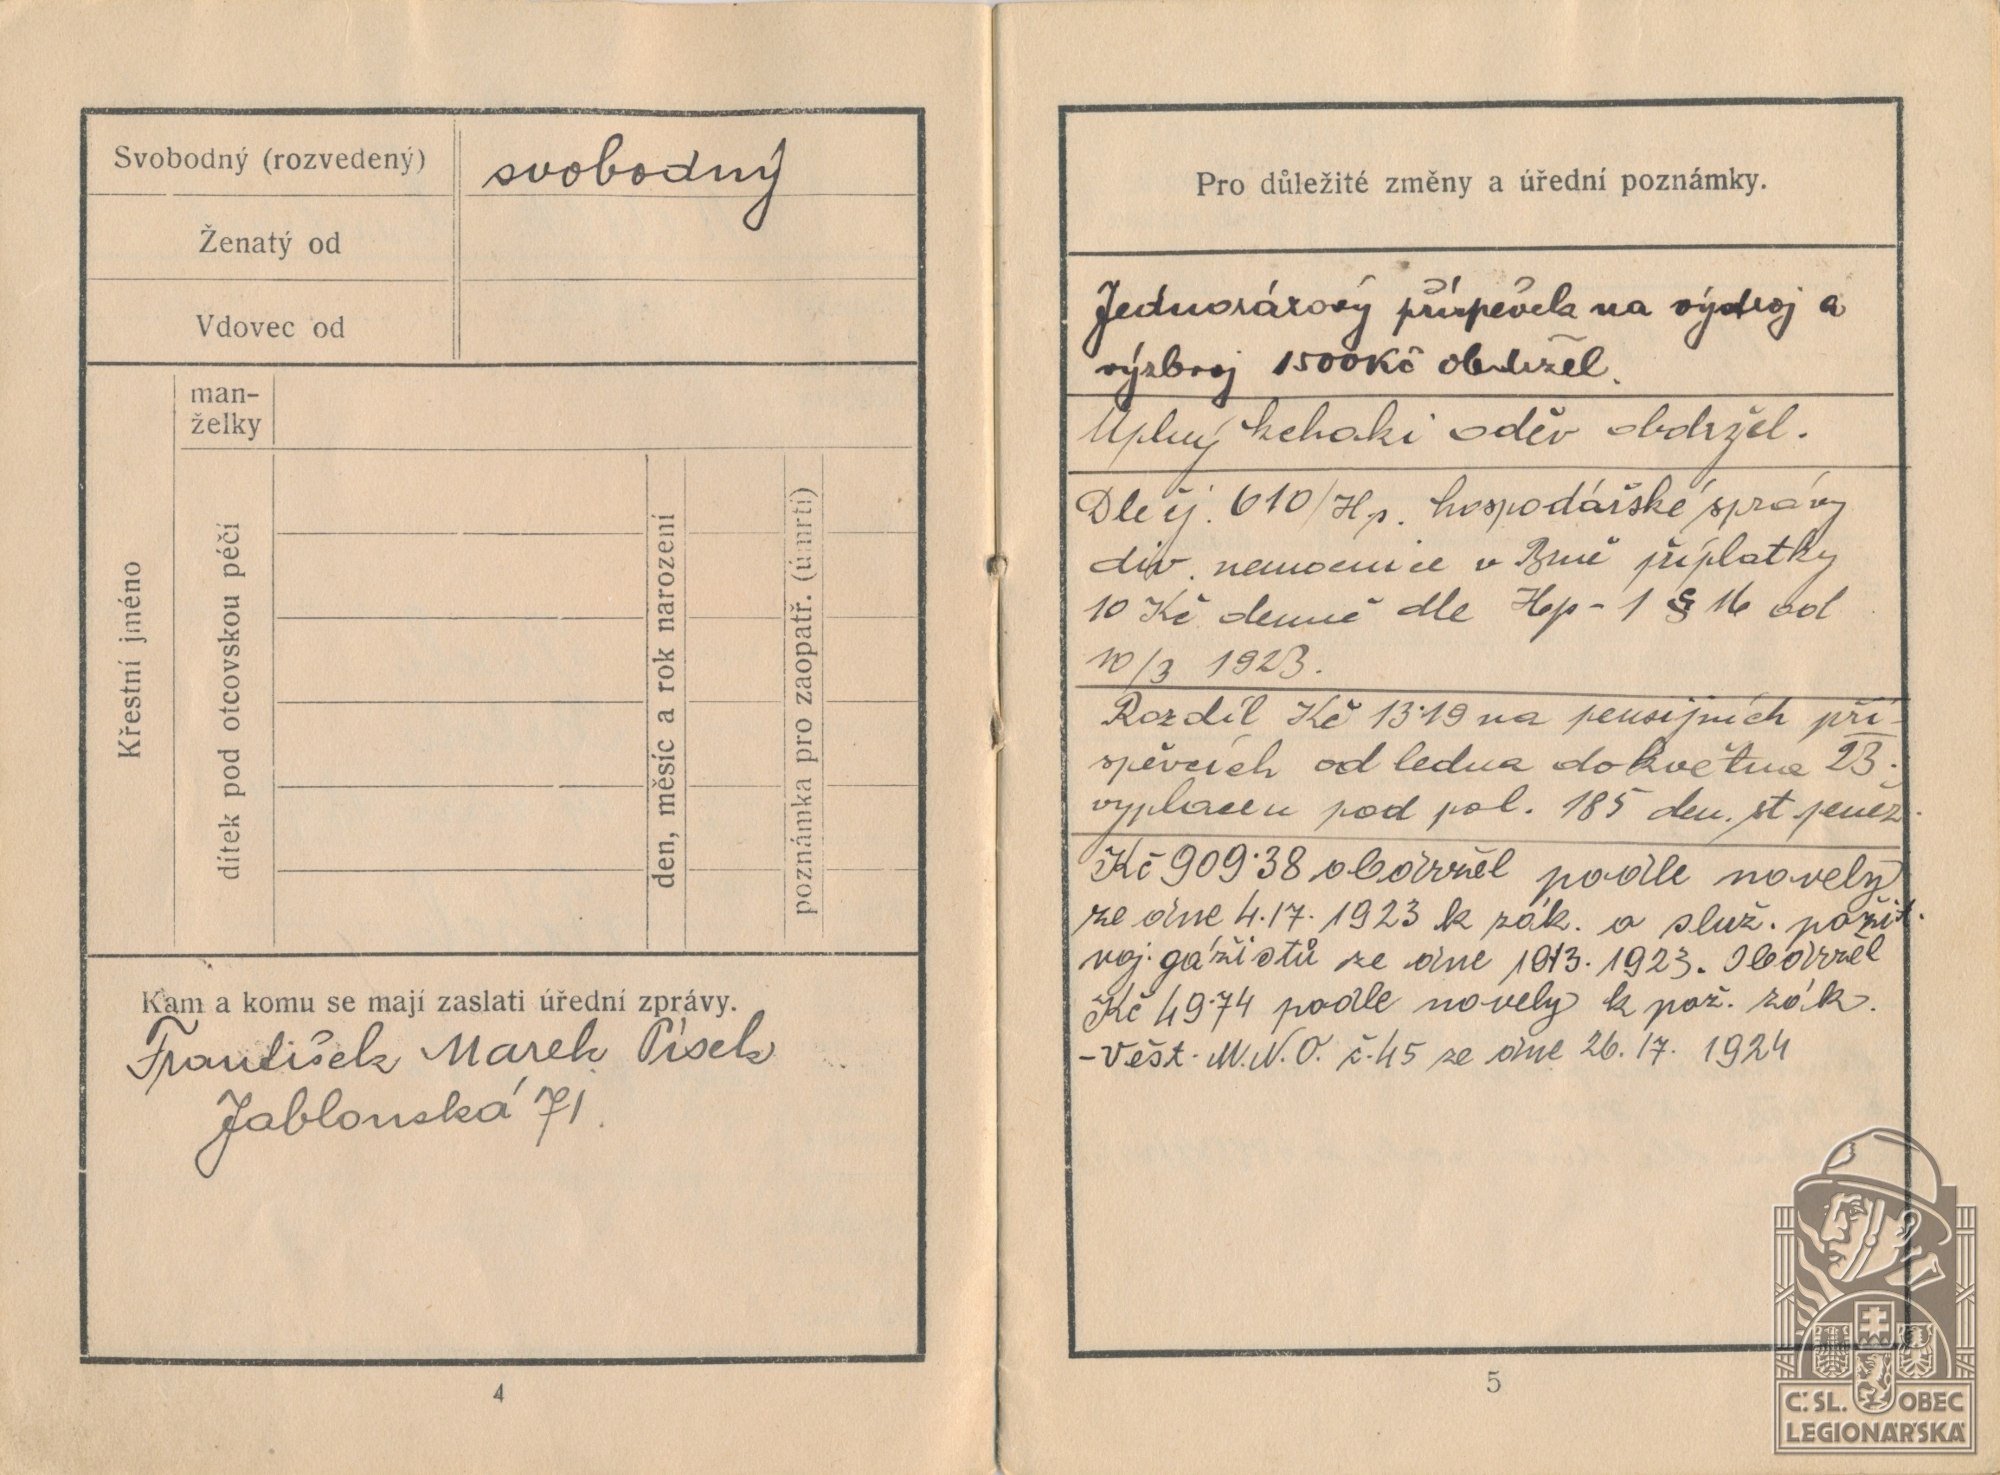 Svobodný (rozvedený)
svobodný
Ženatý od
Vdovec od
Křestní jméno
man-
želky
dítek pod otcovskou péčí
den, měsíc a rok narození
poznámka pro zaopatř. (úmrtí)
Kam a komu se mají zaslati úřední zprávy.
František Marek Písek
Jablonská 71.
4
Pro důležité změny a úřední poznámky.
Jednorázový příspěvek na výstroj a
výzbroj 1500Kč obdržel.
Úplný kehaki oděv obdržel.
Dle čj. 610/Hp. hospodářské správy
div. nemocnice v Brně příplatky
10 Kč denně dle Hp-1 § 16 od
10/3 1923.
Rozdíl Kč 13·19 na pensijních pří-
spěvcích od ledna do května 23.
vyplacen pod pol. 185 den. st peněž.
Kč 909·38 obdržel podle novely
ze dne 4.17. 1923 k zák. o služ. požit.
voj. gážistů ze dne 1923. Obdržel
Kč 49·74 podle novely k pož. zák.
-Věst. M.N.O. č.45 ze dne 26.17. 1924
5
ČSL. OBEC
LEGIONÁŘSKÁ